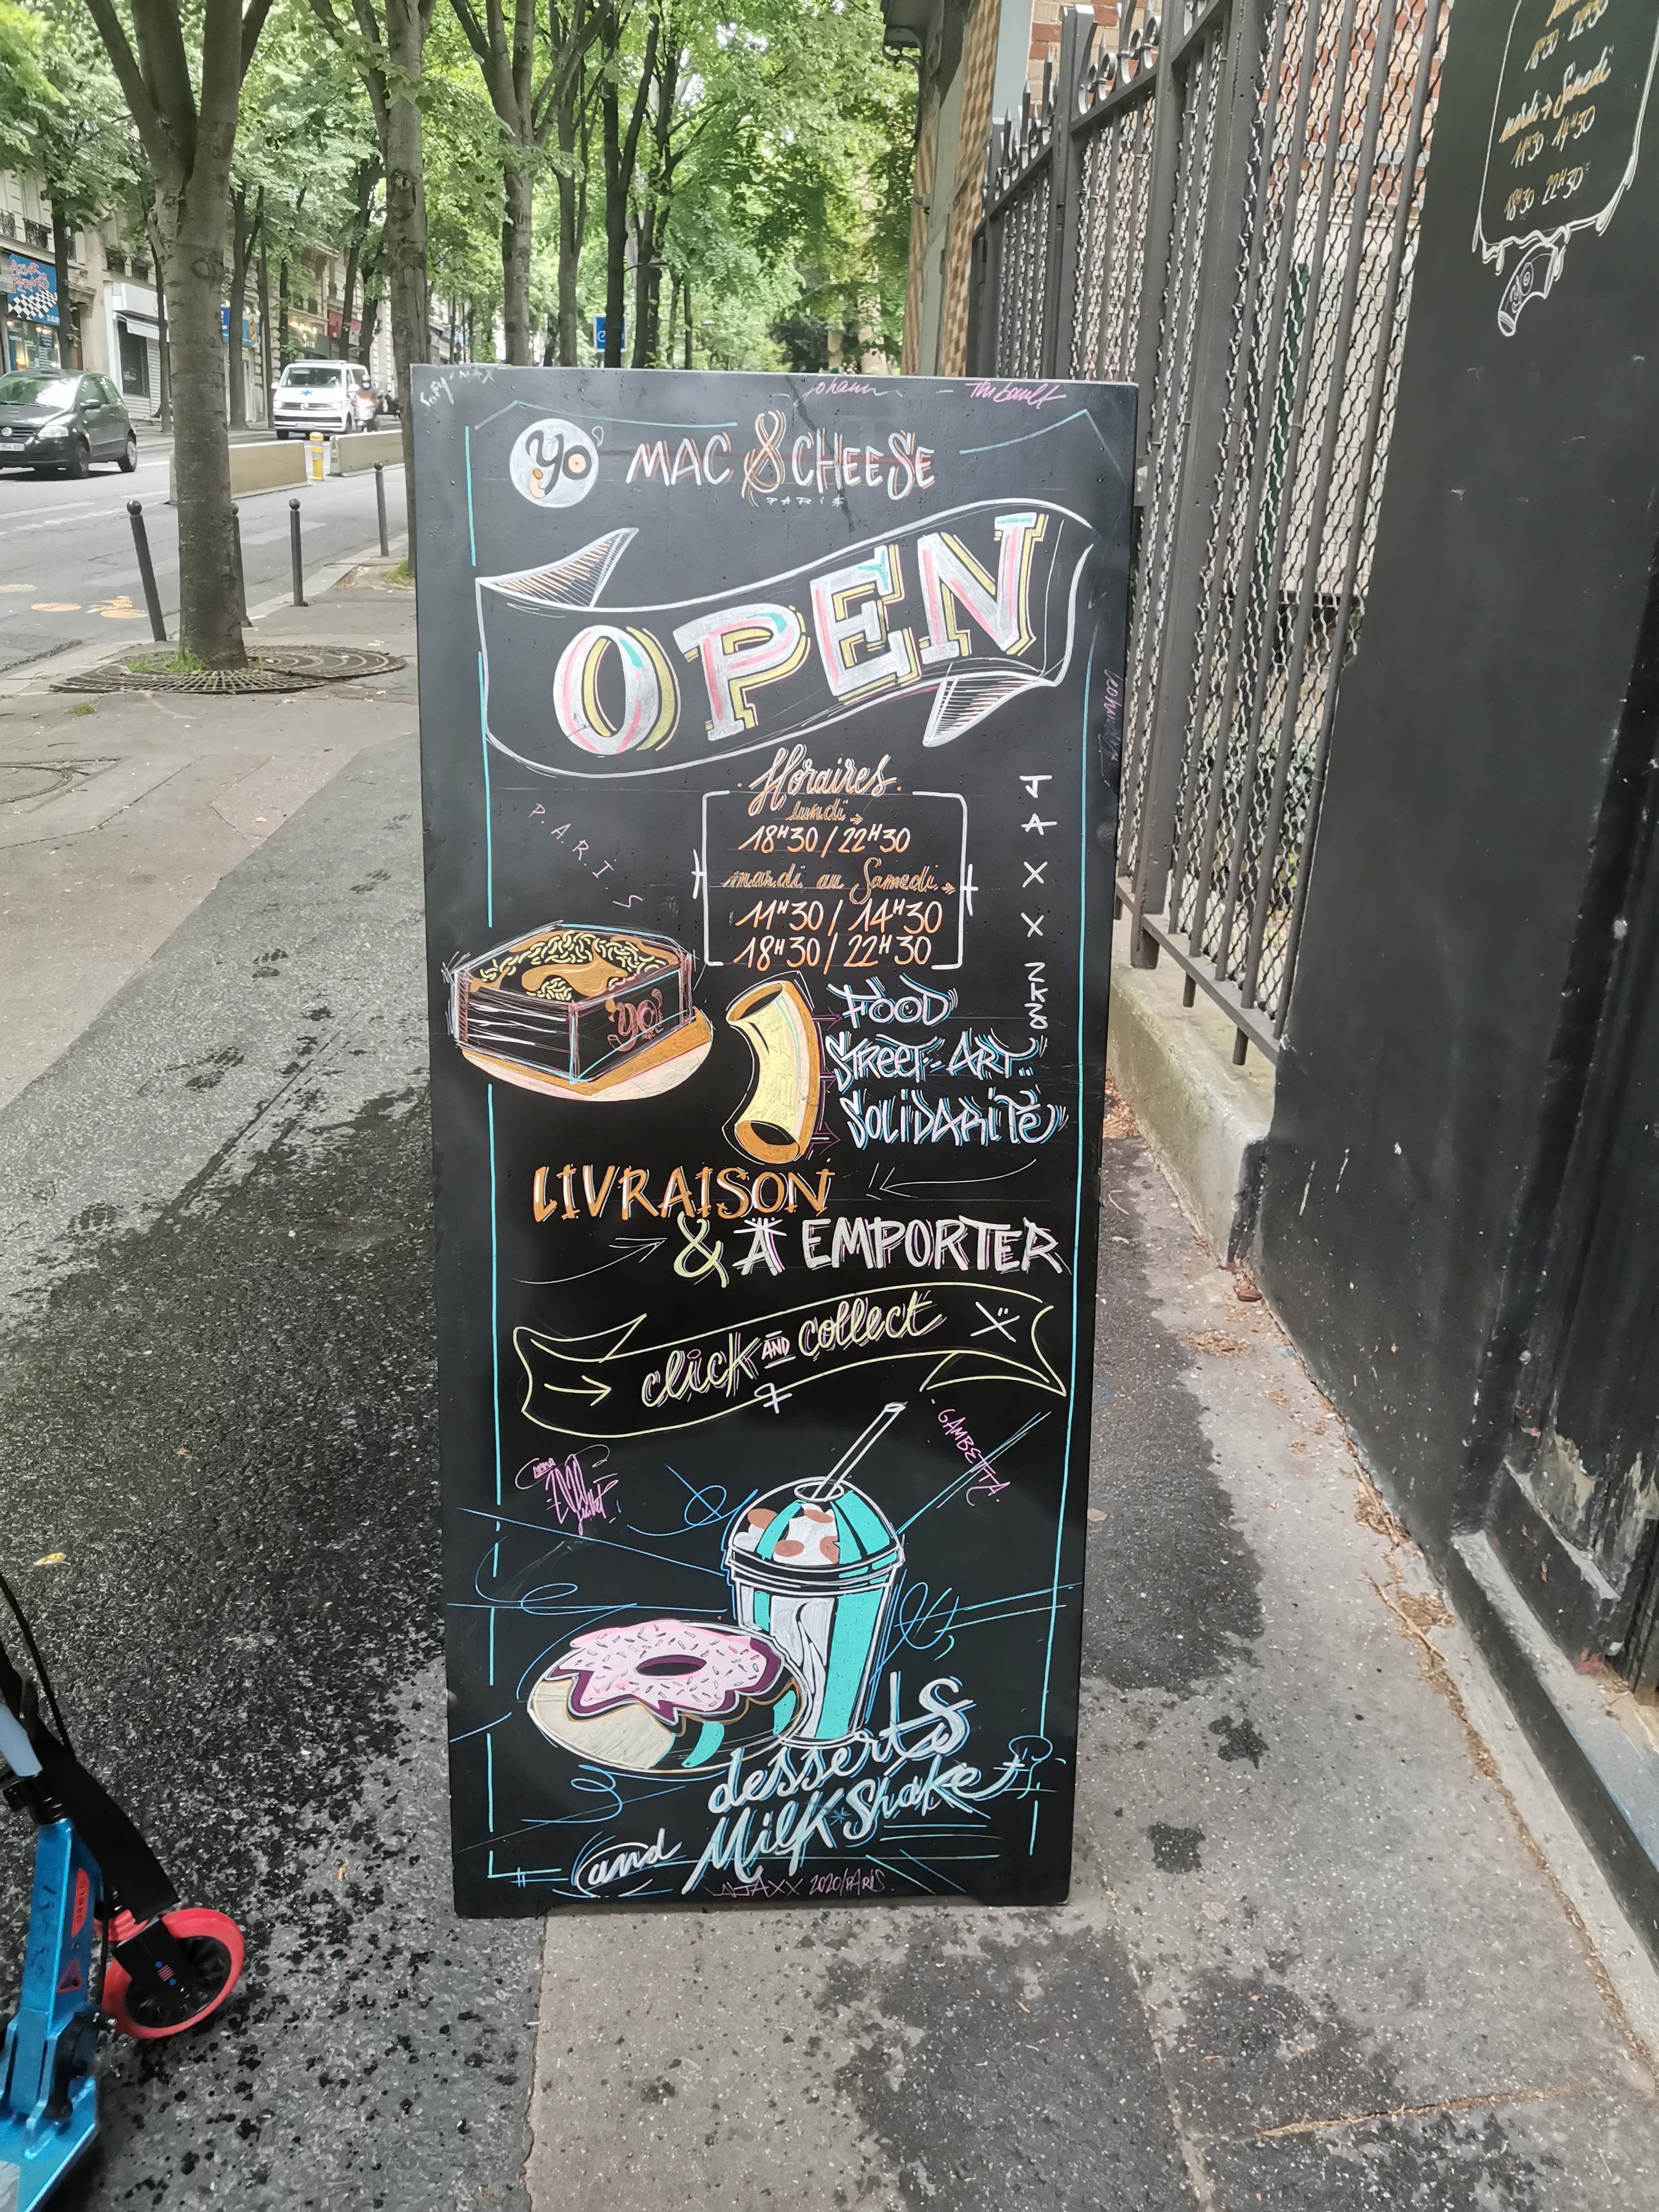 Johann
Thibault
yo'
MAC & CHEESE
PARIS
OPEN
Horaires
lundi
18H30 / 22H30
mardi au Samedi
11H30 / 14H30
18H30 / 22H30
P.A.R.I.S
JAXX
yo!
FOOD
STREET-ART
SOLIDARITÉ
LIVRAISON
& À EMPORTER
click AND collect
GAMBETTA
desserts
and MilkShake
JAXX 2020/PARIS
mardi → Samedi
11H30 - 14H30
18H30 - 22H30